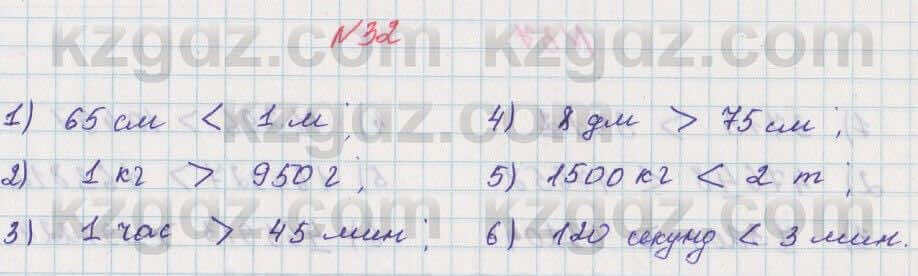 N 32
1) 65 см < 1 м; 4) 8 дм > 75 см;
2) 1 кг > 950 г; 5) 1500 кг < 2 т;
3) 1 час > 45 мин; 6) 120 секунд < 3 мин.
kzgdz.com kzgdz.com
kzgdz.com kzgdz.com
kzgdz.com kzgdz.com